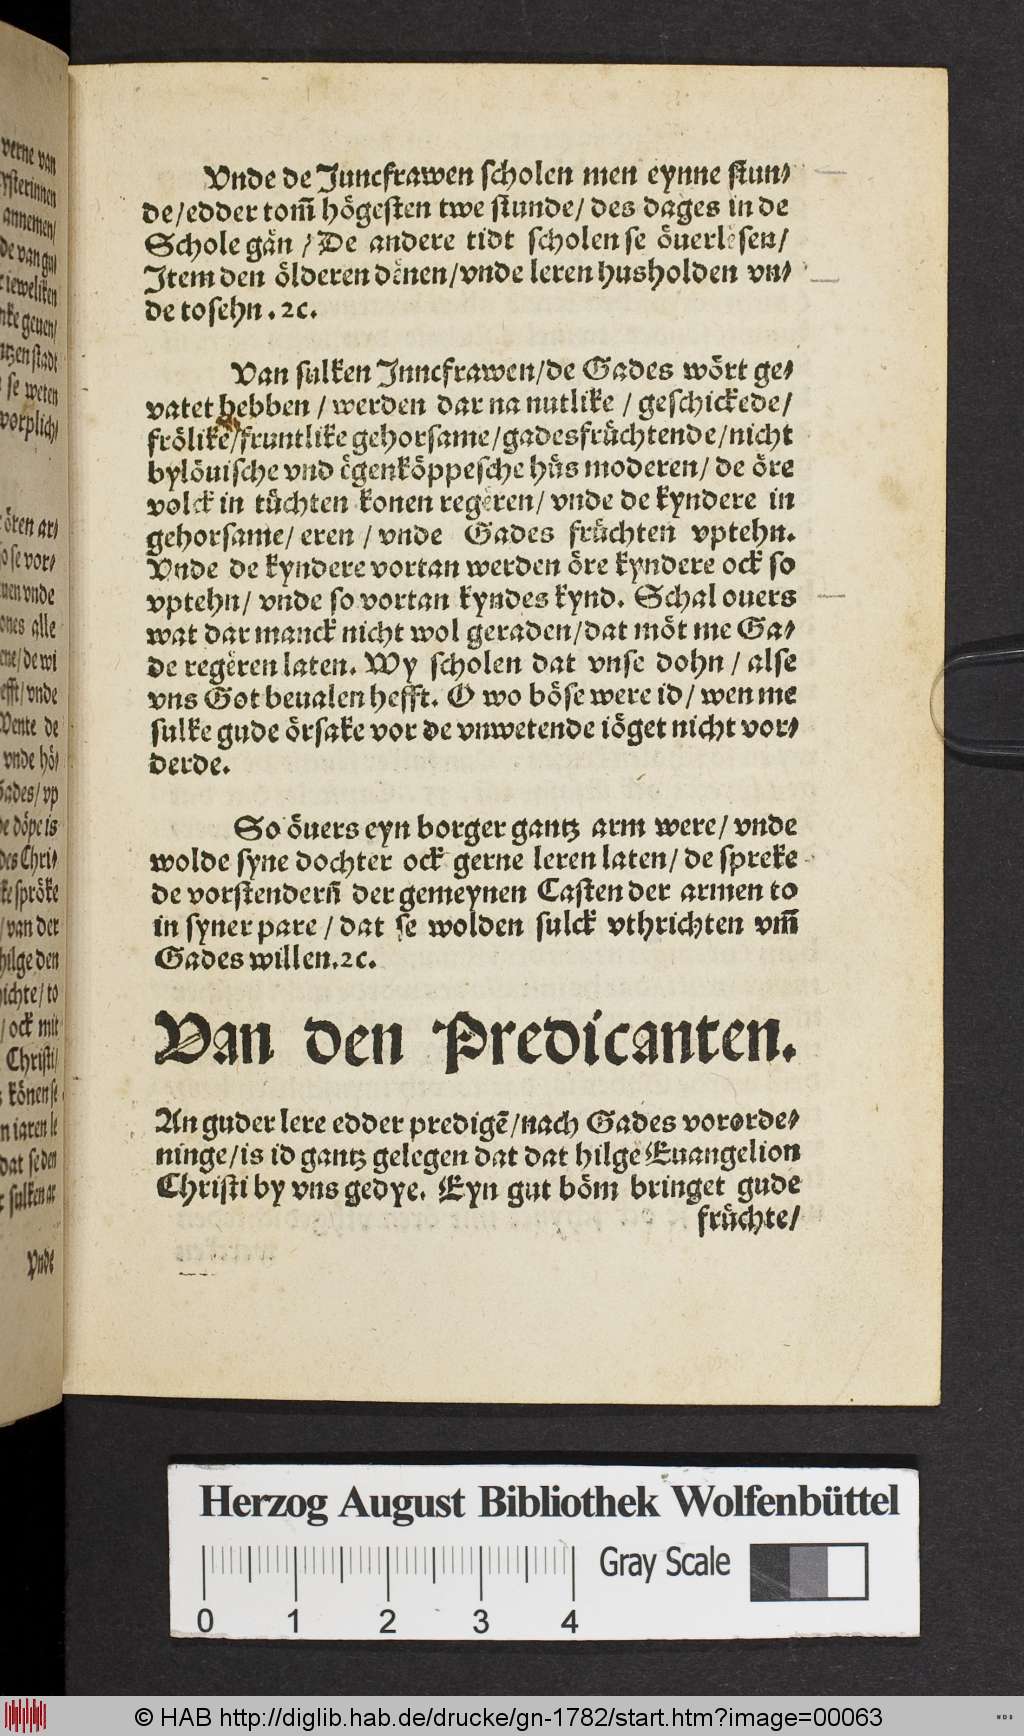 verne van
ysterinnen
annemen/
de van gu/
ieweliken
nke geuen/
ntzen stadt
se weten
vorplich/
ören ar/
so se vor/
uen vnde
ones alle
ene/ de wi
efft/ vnde
Wente de
vnde hö/
Gades/ vp
de döpe is
des Chri/
ke spröke
/ van der
hilge den
ichte/ to
/ ock mit
Christi/
könen se
n iaren le
dat se den
sulken ar
Vnde
Vnde de Juncfrawen scholen men eynne stun/
de/ edder tom̄ högesten twe stunde/ des dages in de
Schole gån / De andere tidt scholen se öuerlesen/
Item den ölderen denen/ vnde leren husholden vn/
de tosehn. 2c.
Van sulken Jnncfrawen/ de Gades wört ge/
vatet hebben / werden dar na nutlike / geschickede/
frölike/ fruntlike gehorsame/ gadesfrüchtende/ nicht
bylöuische vnd egenköppesche hüs moderen/ de öre
volck in tüchten konen regeren/ vnde de kyndere in
gehorsame/ eren / vnde Gades früchten vptehn.
Vnde de kyndere vortan werden öre kyndere ock so
vptehn/ vnde so vortan kyndes kynd. Schal ouers
wat dar manck nicht wol geraden/ dat möt me Ga/
de regeren laten. Wy scholen dat vnse dohn / alse
vns Got beualen hefft. O wo böse were id/ wen me
sulke gude örsake vor de vnwetende iöget nicht vor/
derde.
So öuers eyn borger gantz arm were/ vnde
wolde syne dochter ock gerne leren laten/ de spreke
de vorstendern̄ der gemeynen Casten der armen to
in syner pare / dat se wolden sulck vthrichten vm̄
Gades willen. 2c.
Van den Predicanten.
An guder lere edder predigē/ nach Gades vororde/
ninge/ is id gantz gelegen dat dat hilge Euangelion
Christi by vns gedye. Eyn gut böm bringet gude
früchte/
Herzog August Bibliothek Wolfenbüttel
Gray Scale
0 1 2 3 4
© HAB http://diglib.hab.de/drucke/gn-1782/start.htm?image=00063